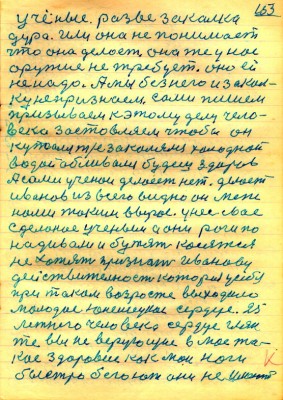 163
учёные. разве закалка
дура. или она не понимает
что она делает она же у нас
оружие не требует. оно ей
не надо. А мы без него и закал-
ку не признаем. сами пишем
призываем к этому делу чело-
века заставляем чтобы он
холодной
водой обливал будеш здоров
А сами ученои делает нет. делает
иванов из всего видно он меж
нами таким вырос. у нее свое
сделаное ученым а они рога по
надивали и бужят косятся
не хотят признать иванову
действительность которая у себя
при таком возросте выходило
молодые юнешецкое сердце. 25
летнего человека сердце глян
те вы не верующие в мое та-
кое здоровие как мои ноги
быстро бегают они не